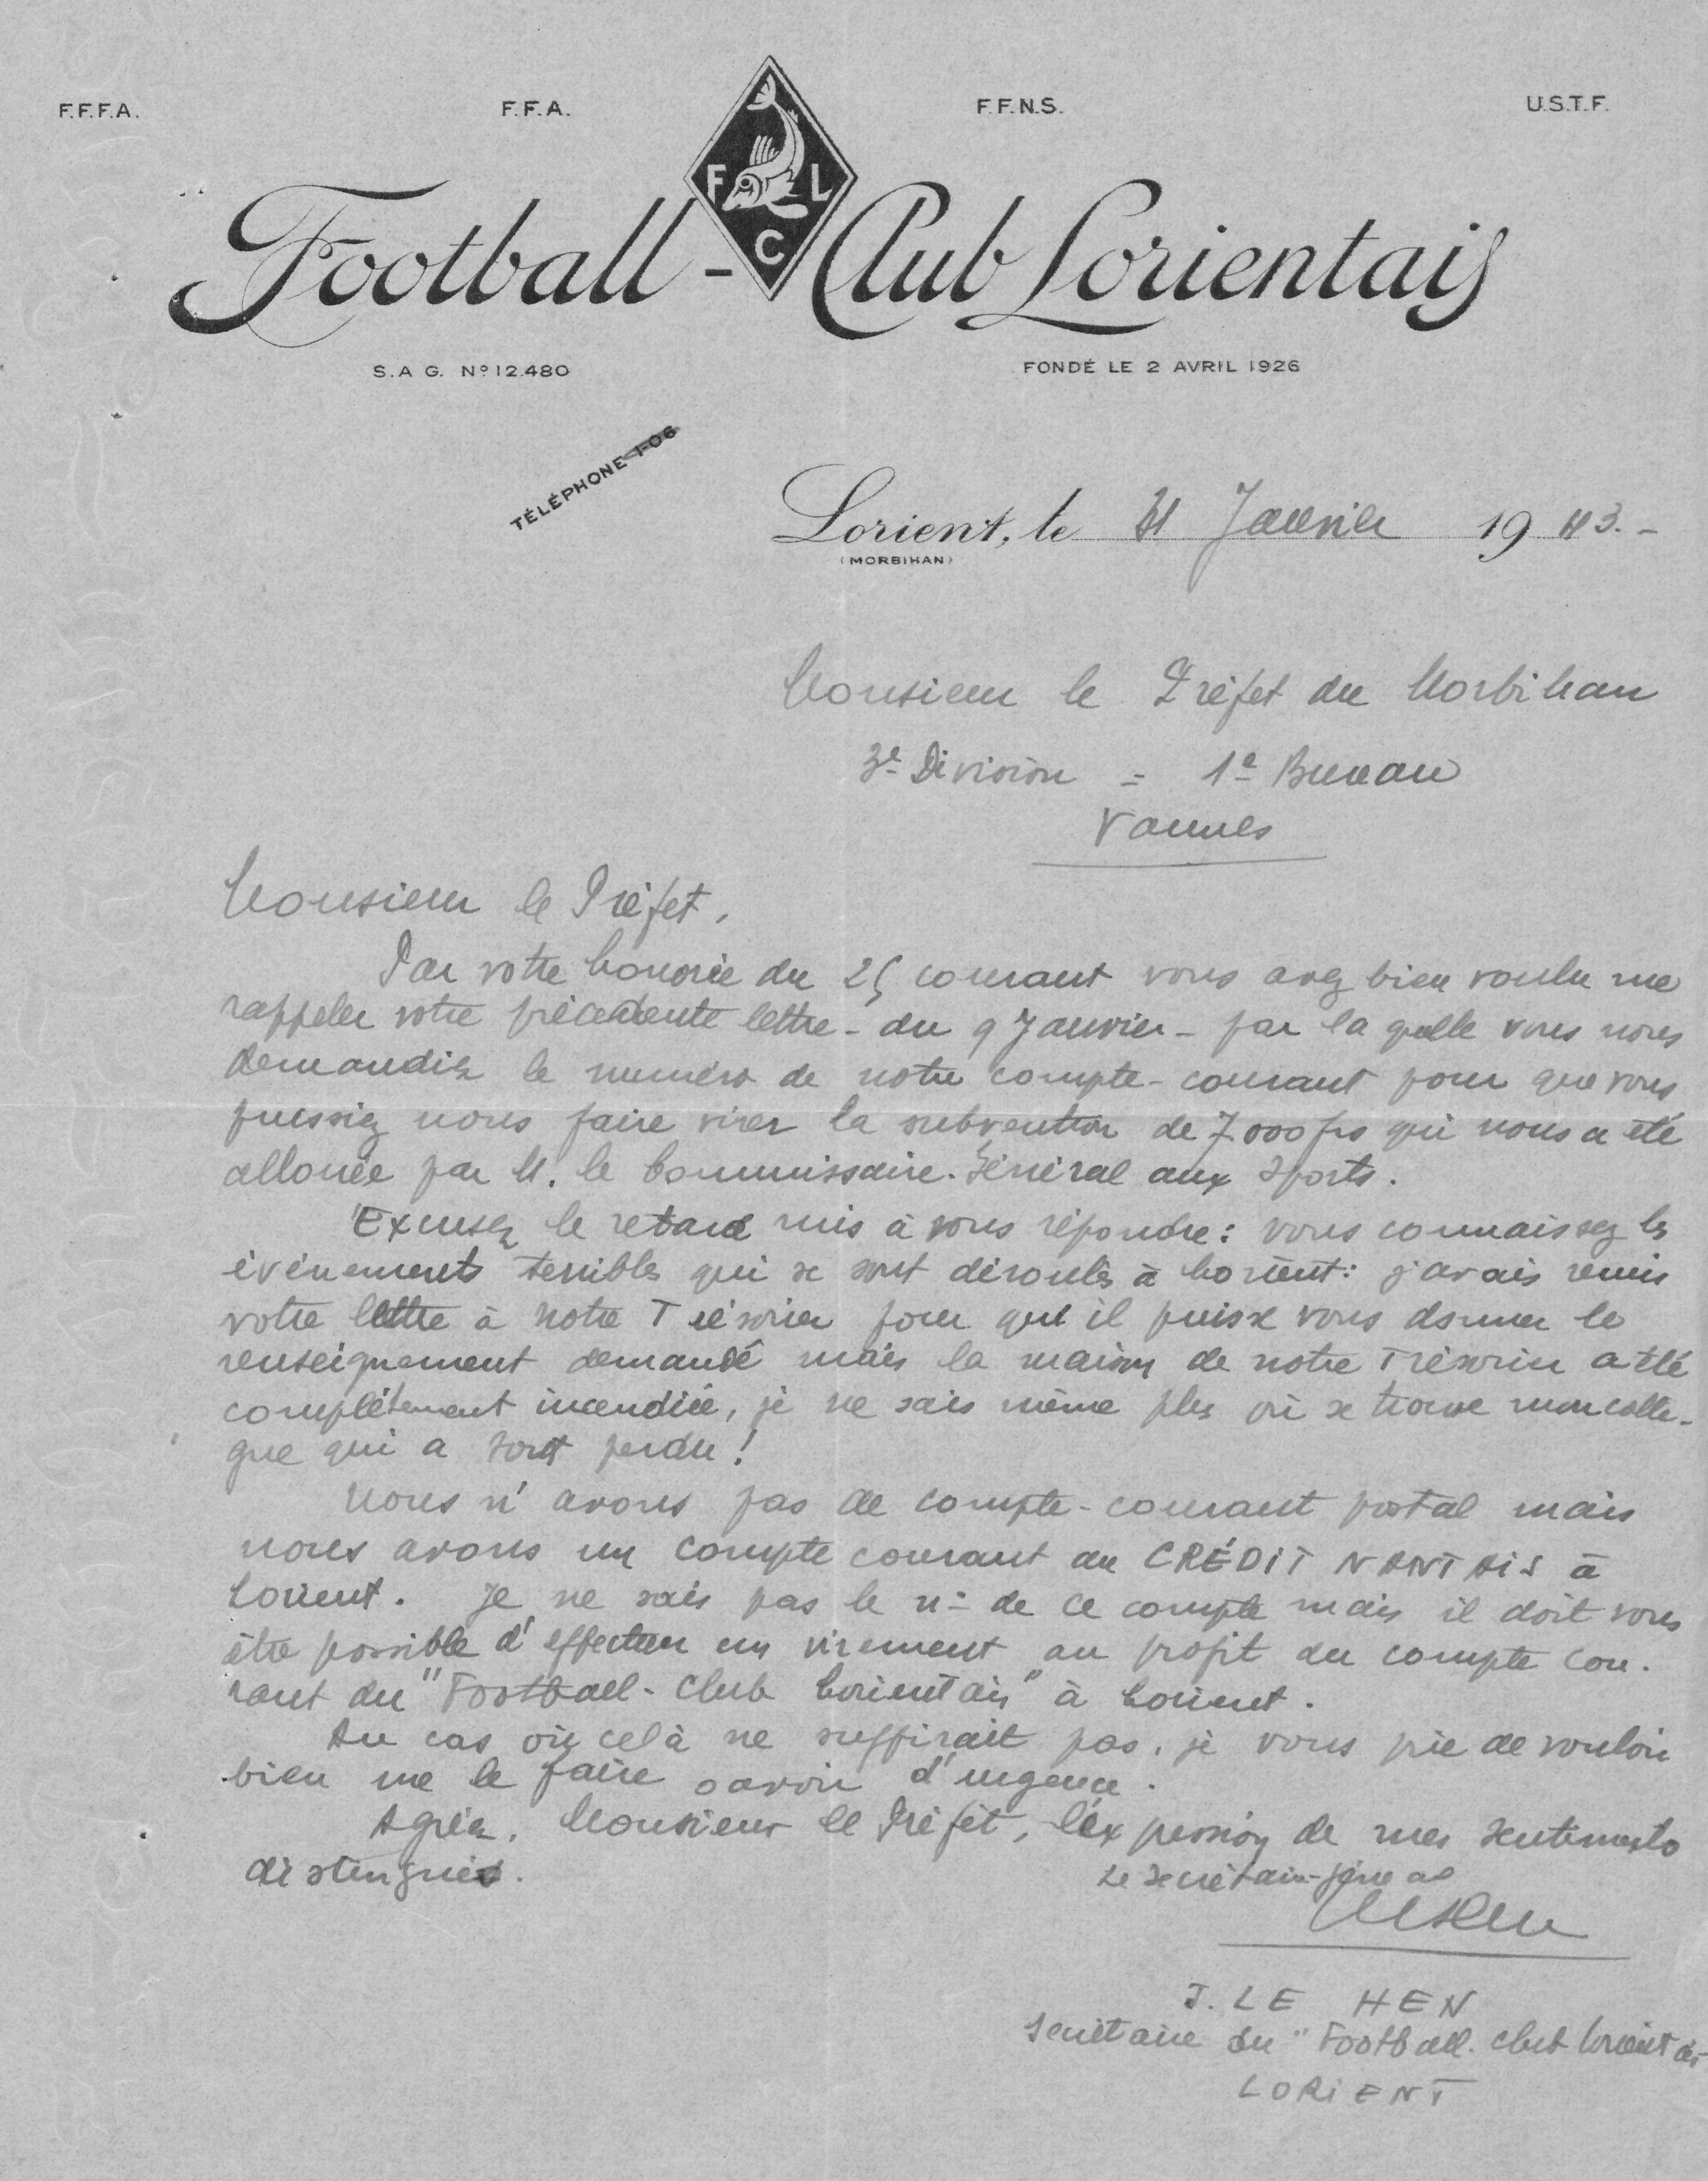 F.F.F.A. F.F.A. F.F.N.S. U.S.T.F.
F L
C
Football-Club Lorientais
S.A G. Nº 12.480 FONDÉ LE 2 AVRIL 1926
TÉLÉPHONE 1-06
Lorient, le 31 Janvier 1943.-
(MORBIHAN)
Monsieur le Préfet du Morbihan
3e Division = 1e Bureau
Vannes
Monsieur le Préfet,
Par votre honorée du 25 courant vous avez bien voulu me
rappeler votre précedente lettre - du 9 Janvier - par la quelle vous nous
demandiez le numéro de notre compte-courant pour que vous
puissiez nous faire virer la subvention de 7.000 frs qui nous a été
allouée par M. le Commissaire-Général aux Sports.
Excusez le retard mis à vous répondre : vous connaissez les
événements terribles qui se sont déroulés à Lorient : j'avais remis
votre lettre à notre Trésorier pour que il puisse vous donner le
renseignement demandé mais la maison de notre Trésorier a été
complétement incendiée, je ne sais même plus où se trouve mon collè-
gue qui a tout perdu !
Nous n'avons pas de compte-courant postal mais
nous avons un compte courant au CRÉDIT NANTAIS à
Lorient. Je ne sais pas le n° de ce compte mais il doit vous
être possible d'effectuer un virement au profit du compte cou-
rant du "Football-Club Lorientais" à Lorient.
Au cas où celà ne suffirait pas, je vous prie de vouloir
bien me le faire savoir d'urgence.
Agréez, Monsieur le Préfet, l'expression de mes sentiments
distingués.
Le Secrétaire-général
J. LE HEN
Secrétaire du "Football-Club Lorientais
LORIENT